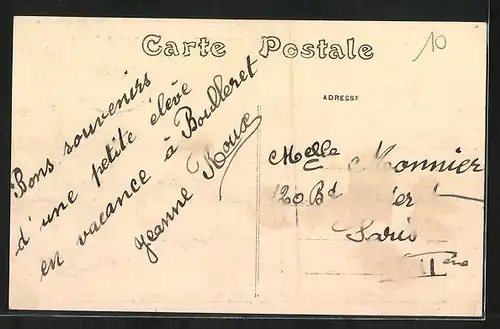 Carte Postale
10
ADRESSE
Bons souvenirs
d'une petite élève
en vacance à Boulleret
Jeanne Roux
Melle Monnier
120 Bd
Paris
IIème